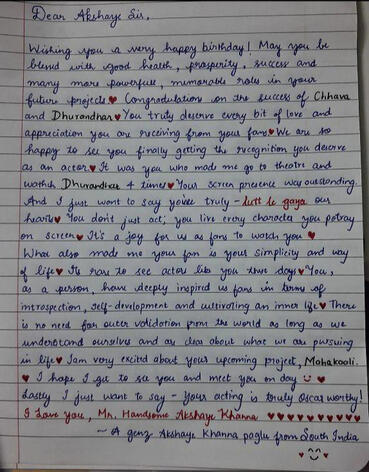 Dear Akshaye Sir,
Wishing you a very happy birthday! May you be
blessed with good health, prosperity, success and
many more powerful, memorable roles in your
future projects♥ Congratulations on the success of Chhava
and Dhurandhar♥ You truly deserve every bit of love and
appreciation you are receiving from your fans♥ We are so
happy to see you finally getting the recognition you deserve
as an actor♥ It was you who made me go to theatre and
watch Dhurandhar 4 times♥ Your screen presence was outstanding.
And I just want to say you've truly - lutt le gaya our
hearts♥ You don't just act; you live every character you potray
on screen♥ It's a joy for us as fans to watch you ♥
What also made me your fan is your simplicity and way
of life♥ Its rare to see actor like you these days♥ You,
as a person, have deeply inspired us fans in terms of
introspection, self-development and cultivating an inner life♥ There
is no need for outer validation from the world as long as we
understand ourselves and are clear about what we are pursuing
in life♥ I am very excited about your upcoming project, Mahakaali.
♥ I hope I get to see you and meet you on day ♥
Lastly I just want to say - Your acting is truly Oscar worthy!
I Love you, Mr. Handsome Akshaye Khanna ♥♥♥♥♥♥♥♥♥♥
~ A genz Akshaye Khanna paglu from South India